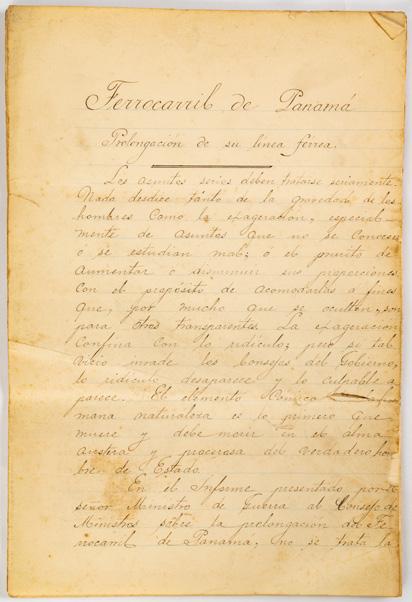 Ferrocarril de Panamá
Prolongación de su línea férrea.
Los asuntos serios deben tratarse seriamente.
Nada desdice tánto de la gravedad de los
hombres como la exageración, especial-
mente de asuntos que no se conocen
ó se estudian mal; ó el prurito de
aumentar ó disminuir sus proporciones
con el propósito de acomodarlas a fines
que, por mucho que se oculten, son
para otros transparentes. La exageración
confina con lo ridículo; pero si tal
vicio invade los Consejos del Gobierno,
lo ridículo desaparece y lo culpable a
parece. El elemento cómico
mana naturaleza es lo primero que
muere y debe morir en el alma
austera y procerosa del verdadero hom
bre de Estado.
En el Informe presentado por el
señor Ministro de Guerra al Consejo de
Ministros sobre la prolongación del Fe
rrocarril de Panamá, no se trata la